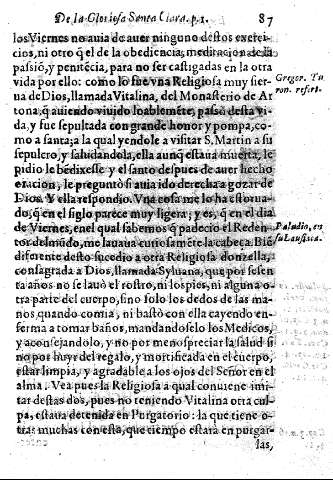 De la Gloriosa Santa Clara. p.1. 87
los Viernes no auia de auer ninguno destos exerci-
cios, ni otro q̃ el de la obediencia, meditacion de la
passió, y penitécia, para no ser castigadas en la otra
vida por ello: como lo fue vna Religiosa muy sier-
ua de Dios, llamada Vitalina, del Monasterio de Ar
tona, q̃ auiendo viuido loablemẽte, passò desta vi-
da, y fue sepultada con grande honor y pompa, co-
mo a santa; a la qual yendole a visitar S. Martin a su
sepulcro, y saludandola, ella aunq̃ estaua muerta, le
pidio le bẽdixesse y el santo despues de auer hecho
oracion, le preguntò si auia ido derecha a gozar de
Dios. Y ella respondio. Vna cosa me lo ha estorua-
do, q̃ en el siglo parece muy ligera; y es, q̃ en el dia
de Viernes, en el qual sabemos q̃ padeciò el Reden
tor del mũdo, me lauaua curiosamẽte la cabeça. Biẽ
diferente desto sucedio a otra Religiosa donzella,
consagrada a Dios, llamada Syluana, que por sesen
ta años no se lauò el rostro, ni los pies, ni alguna o-
tra parte del cuerpo, sino solo los dedos de las ma-
nos, quando comia, ni bastò con ella cayendo en-
ferma a tomar baños, mandandoselo los Medicos,
y aconsejandolo, y no por menospreciar la salud si
no por huyr del regalo, y mortificada en el cuerpo,
estar limpia, y agradable a los ojos del Señor en el
alma. Vea pues la Religiosa a qual conuiene imi-
tar destas dos, pues no teniendo Vitalina otra cul-
pa, estaua detenida en Purgatorio: la que tiene o-
tras muchas con esta, que tiempo estarà en purgar-
las,
Gregor. Tu
ron. refert.
Paladio, en
su Lausiaca.